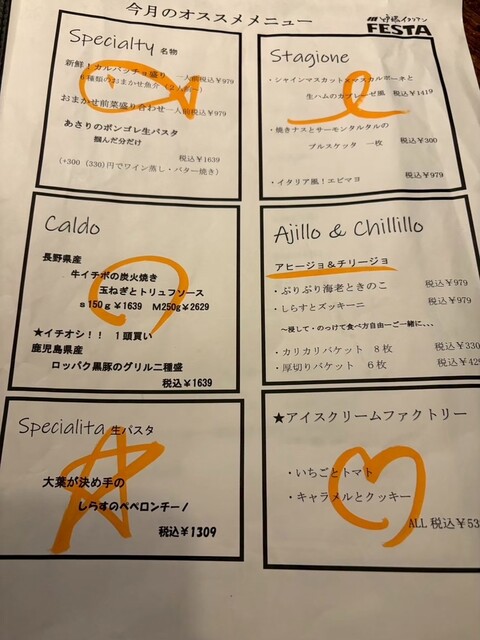 今月のオススメメニュー
イタリアン
FESTA
Specialty 名物
新鮮！カルパッチョ盛り 一人前税込￥979
6種類のおまかせ魚介（2人前～）
おまかせ前菜盛り合わせ一人前税込￥979
あさりのボンゴレ生パスタ
掴んだ分だけ
税込￥1639
(+300 (330)円でワイン蒸し・バター焼き)
Stagione
・シャインマスカットとマスカルポーネと
生ハムのカプレーゼ風 税込￥1419
・焼きナスとサーモンタルタルの
ブルスケッタ 一枚 税込￥300
・イタリア風！エビマヨ 税込￥979
Caldo
長野県産
牛イチボの炭火焼き
玉ねぎとトリュフソース
s150g￥1639 M250g￥2629
★イチオシ！！ 1頭買い
鹿児島県産
ロッパク黒豚のグリル二種盛
税込￥1639
Ajillo & Chillillo
アヒージョ＆チリージョ
・ぷりぷり海老ときのこ 税込￥979
・しらすとズッキーニ 税込￥979
～浸して・のっけて食べ方自由一ご一緒に、、、
・カリカリバケット 8枚 税込￥330
・厚切りバケット 6枚 税込￥429
Specialita 生パスタ
大葉が決め手の
しらすのペペロンチーノ
税込￥1309
★アイスクリームファクトリー
・いちごとトマト
・キャラメルとクッキー
ALL 税込￥53